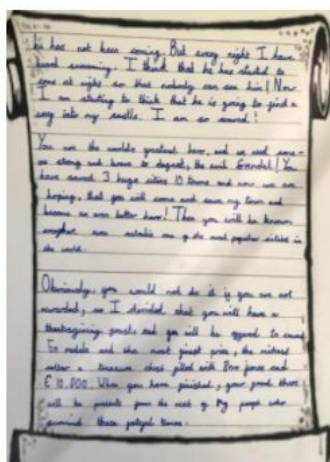 he has not been coming. But every night I have
heard screaming. I think that he has started to
come at night so that nobody can see him! Now
I am starting to think that he is going to find a
way into my castle. I am so scared!
You are the worlds greatest hero, and we need some-
one strong and brave to defeat, the evil Grendel! You
have saved 3 huge cities 10 towns and now we are
hoping, that you will come and save my town and
become an even better hero! Then you will be known
one of the most popular
in the world.
Obviously, you would not do it if you are not
rewarded, so I decided that you will have a
thanksgiving feast, and you will be offered
50 medals and the most prize, the
a treasure chest filled with and
£10.000. When you have finished, your
will be presents from the rest of my people who
survived these times.